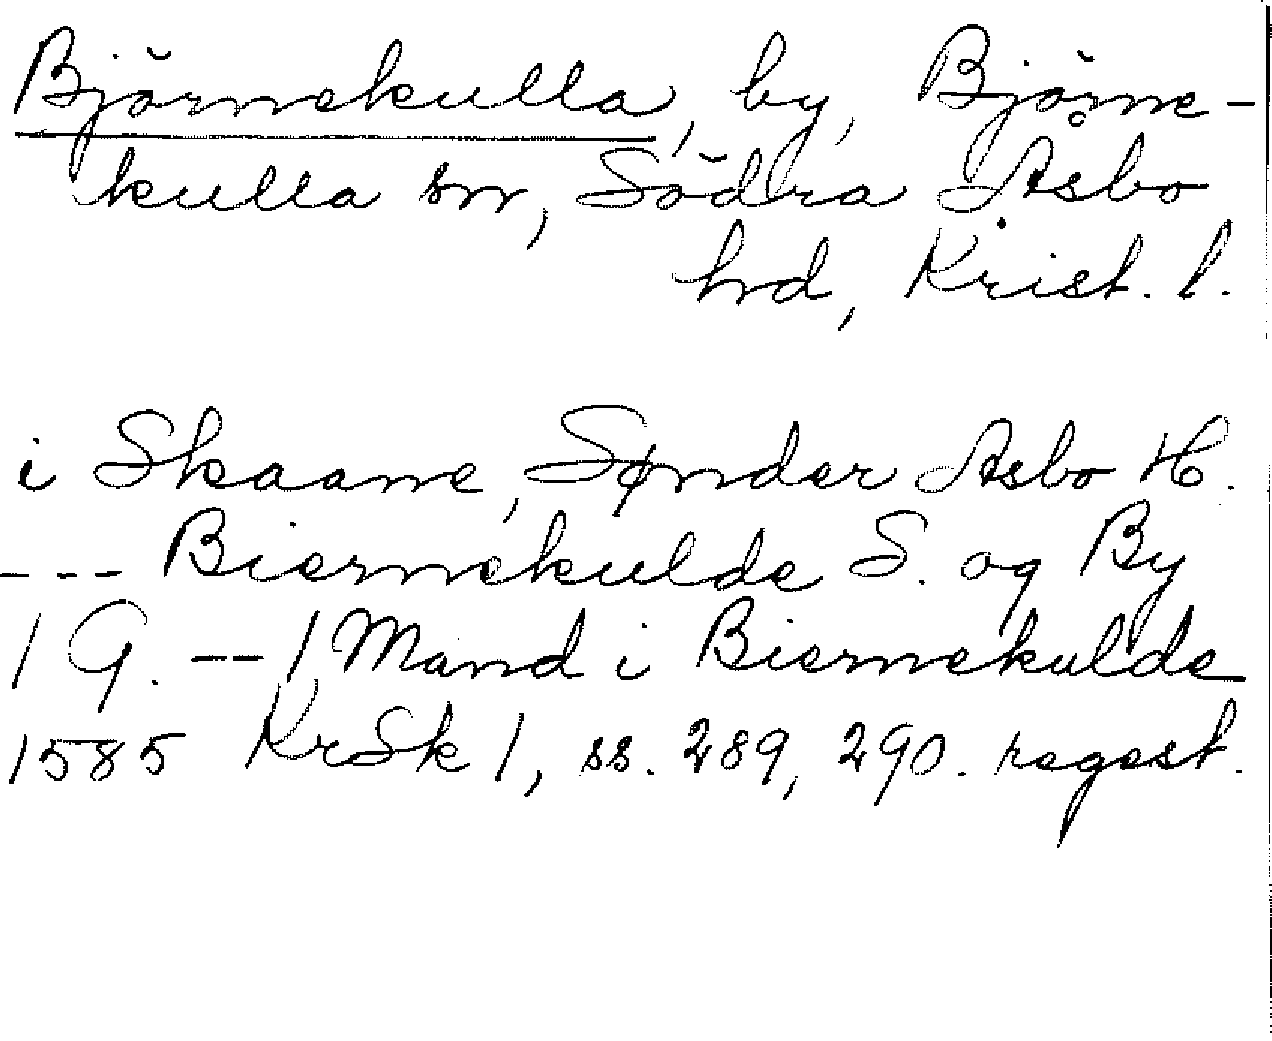 Björnekulla, by, Björne-
kulla sn, Södra Åsbo
hrd, Krist. l.
i Skaane, Sønder Asbo H.
--- Biernekulde S. og By
1 G. -- 1 Mand i Biernekulde
1585 KrSk 1, ss. 289, 290. regest.